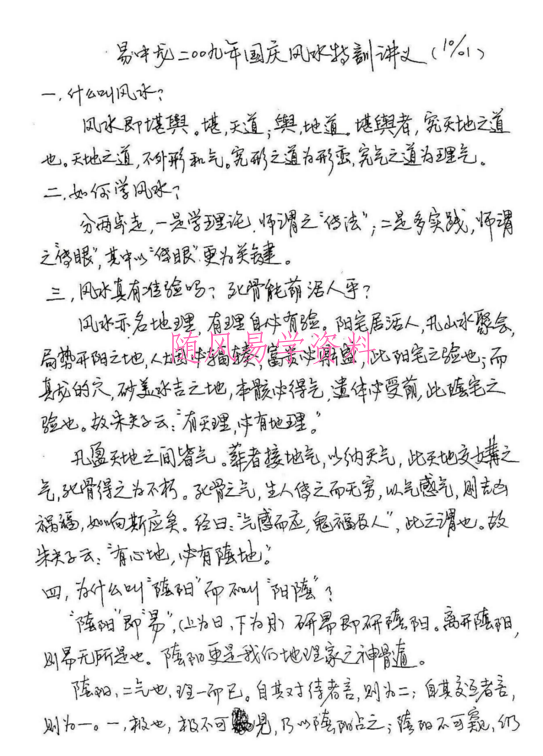 易中龙二00九年国庆风水特训讲义(10/01)
一,什么叫风水?
风水即堪舆。堪,天道;舆,地道。堪舆者,究天地之道
也。天地之道,不外形和气。究形之道为形峦,究气之道为理气。
二,如何学风水?
分两步走,一是学理论,师谓之“传法”;二是多实践,师谓
之“传眼”,其中以“传眼”更为关键。
三,风水真有准验吗?死骨能荫活人乎?
风水亦名地理,有理自必有验。阳宅居活人,凡山水聚会,
局势开阳之地,人烟必稠,此阳宅之验也;而
真龙的穴,砂美水吉之地,本骸必得气,遗体必受荫,此阴宅之
验也。故朱夫子云:“有天理,必有地理。”
随风易学资料
凡盈天地之间皆气。葬者接地气,以纳天气,此天地交媾之
气,死骨得之为不朽。死骨之气,生人传之而无穷,以气感气,则吉凶
祸福,如向斯应矣。经曰:“气感而应,鬼福及人”,此之谓也。故
朱夫子云:“有心地,必有阴地。”
四,为什么叫“阴阳”而不叫“阳阴”?
“阴阳”即“易”,(上为日,下为月)研易即研阴阳。离开阴阳,
则易无所是也。阴阳更是我们地理家之神骨道。
阴阳,二气也,理一而已。自其对待者言,则为二;自其交互者言,
则为一。一,极也,极不可见,乃以阴阳占之;阴阳不可窥,仍